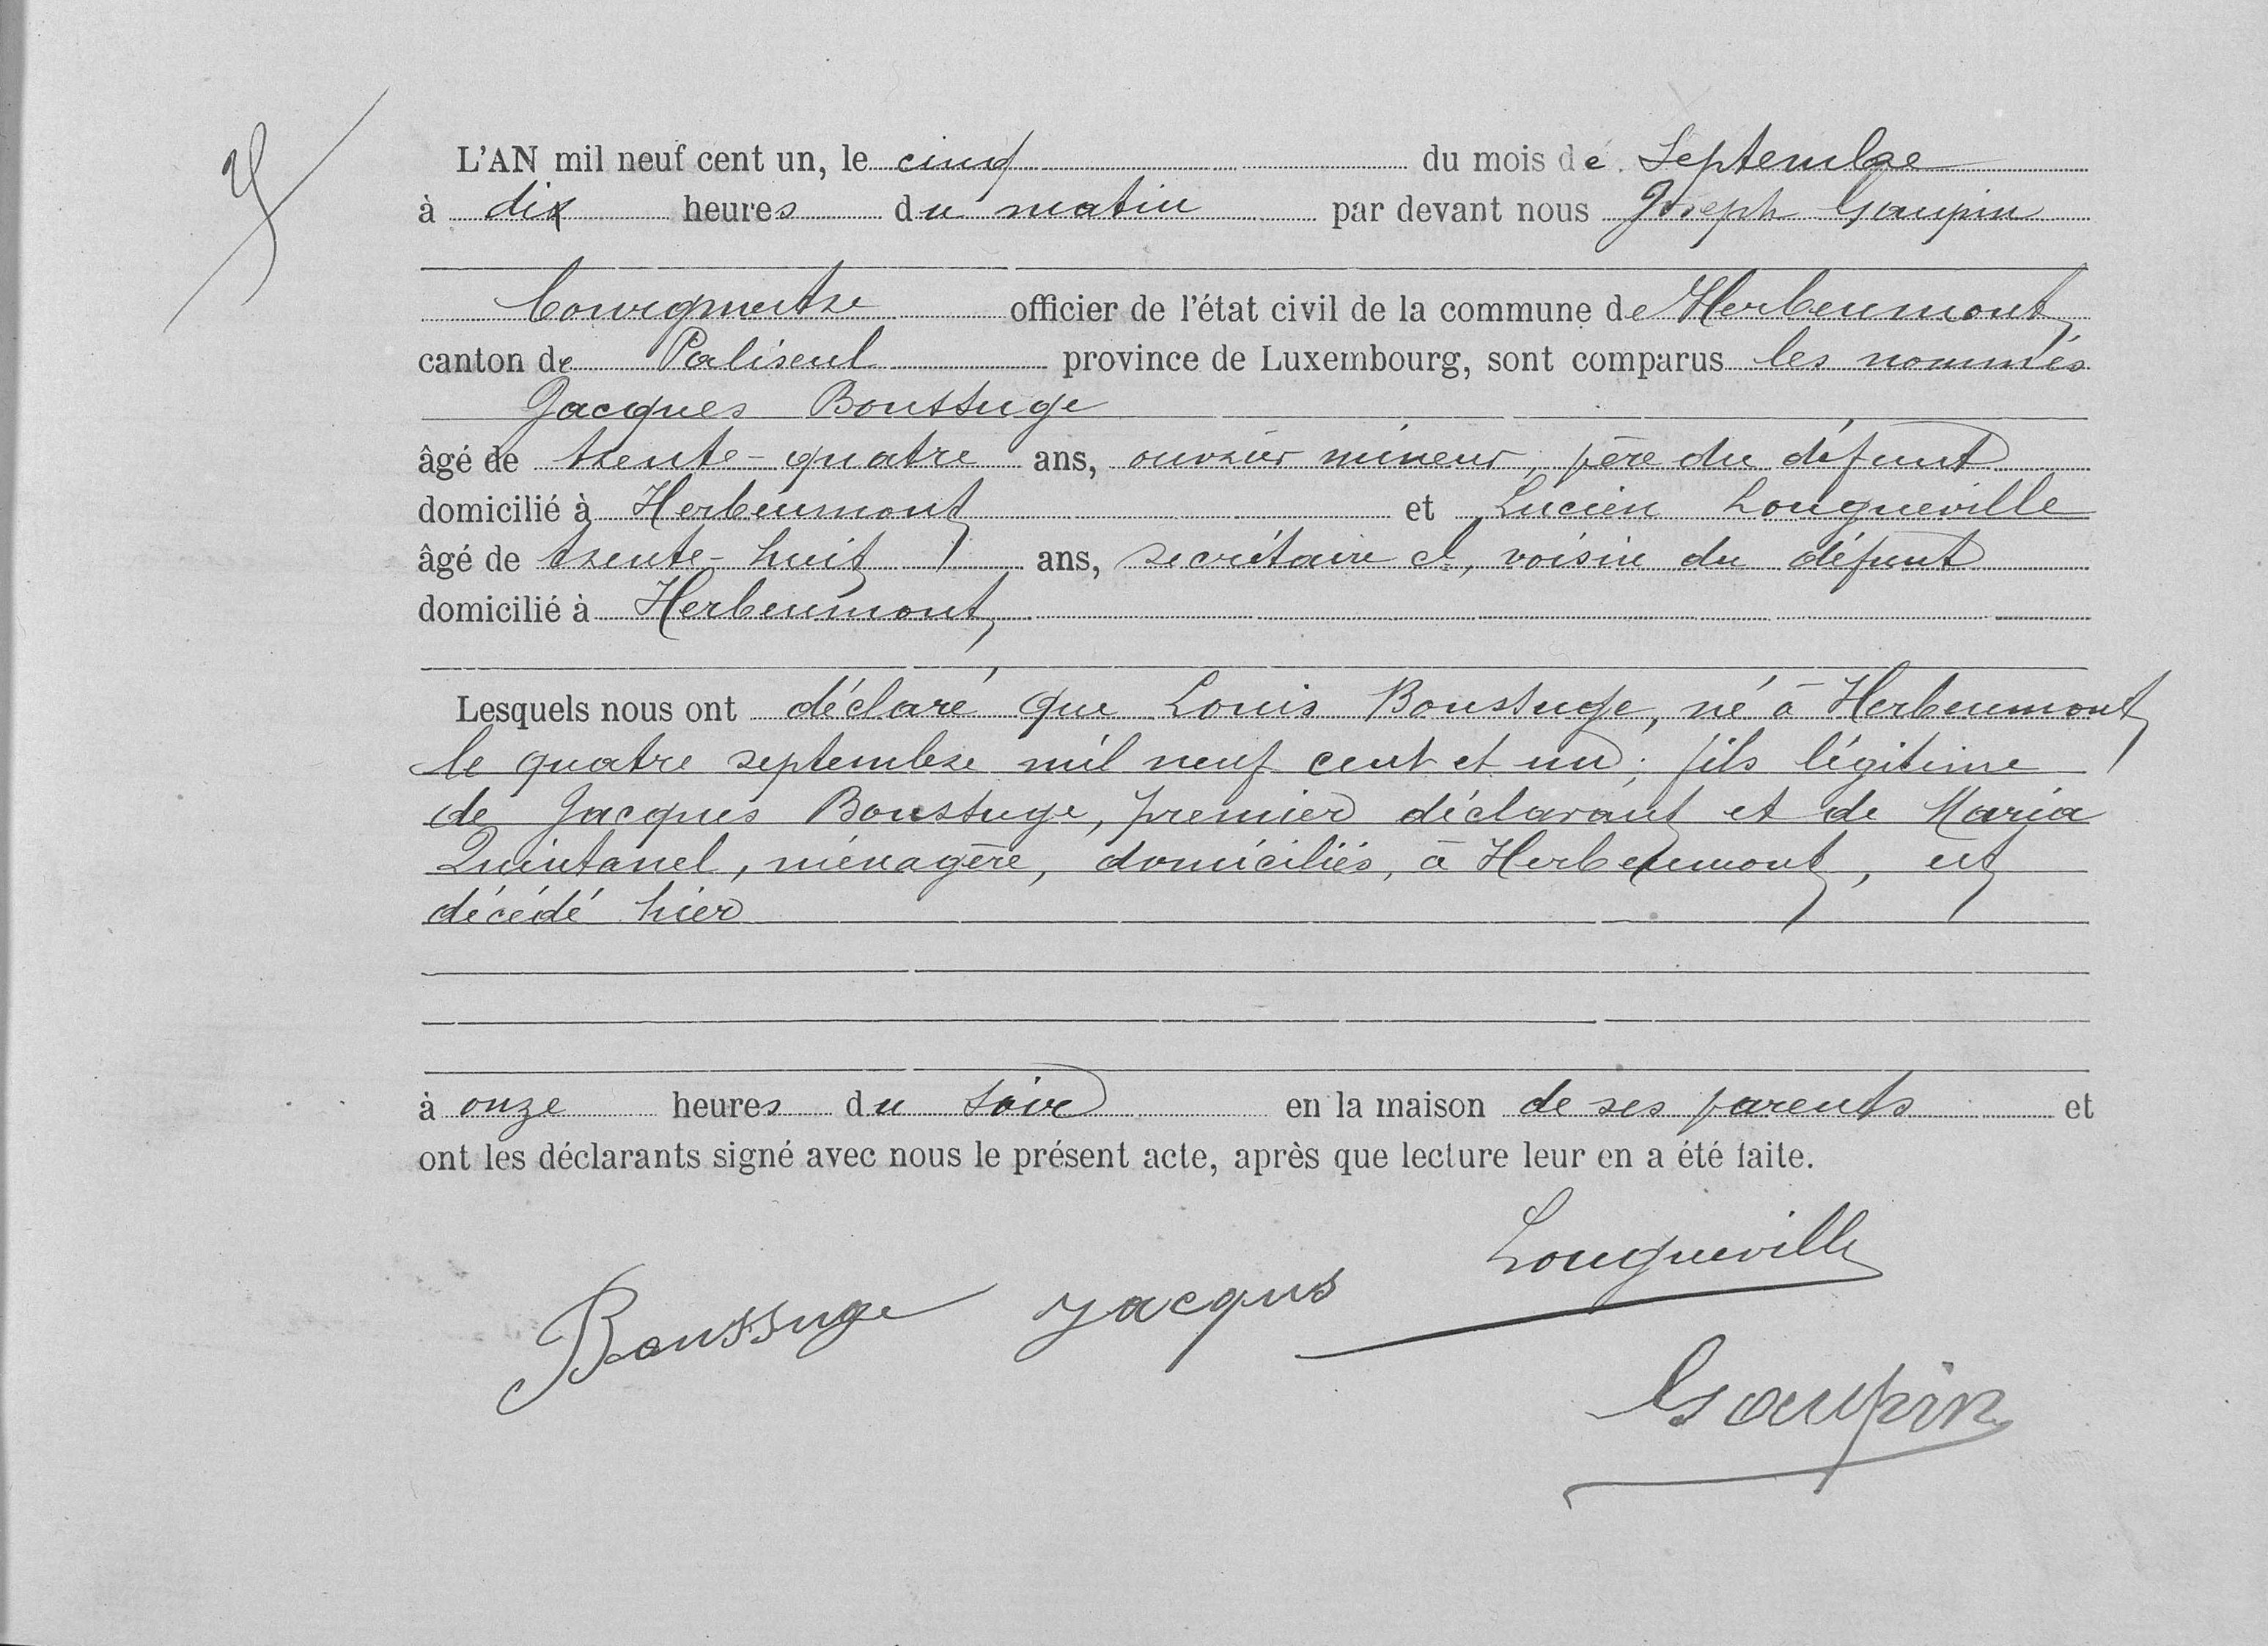 L'AN mil neuf cent un, le cinq du mois de Septembre
à dix heures du matin par devant nous Joseph Gaupin
Bourgmestre officier de l'état civil de la commune de Herbeumont
canton de Paliseul province de Luxembourg, sont comparus les nommés
Jacques Boussuge
âgé de trente-quatre ans, ouvrier mineur, père du défunt
domicilié à Herbeumont et Lucien Longueville
âgé de trente-huit ans, secrétaire cl, voisin du défunt
domicilié à Herbeumont,
Lesquels nous ont déclaré que Louis Boussuge, né à Herbeumont
le quatre septembre mil neuf cent et un; fils légitime
de Jacques Boussuge, premier déclarant et de Maria
Quintanel, ménagère, domiciliés, à Herbeumont, est
décédé hier
à onze heures du soir en la maison de ses parents et
ont les déclarants signé avec nous le présent acte, après que lecture leur en a été faite.
Longueville
Boussuge Jacques
Gaupin